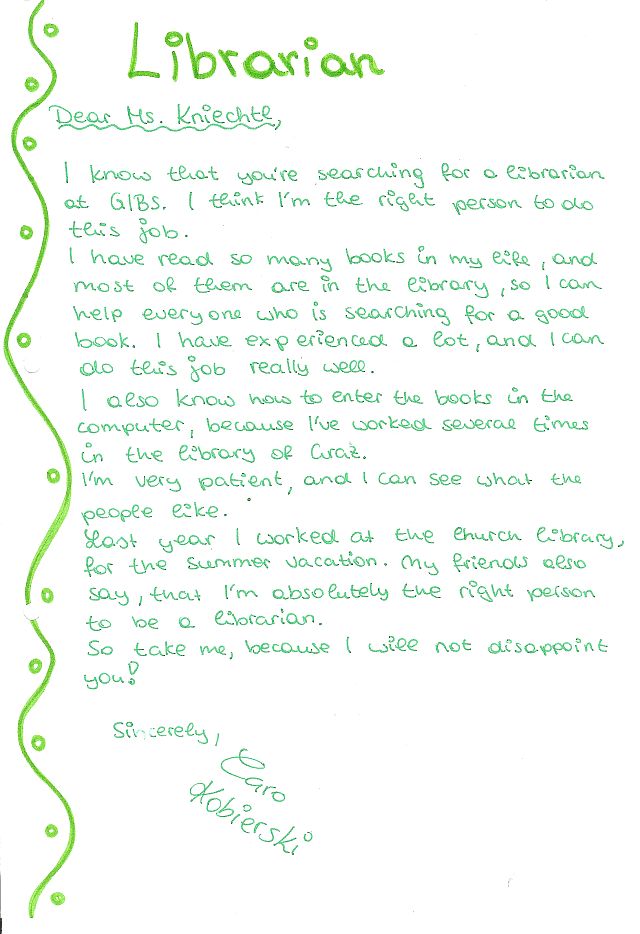 Librarian
Dear Ms. Kniechtl,
I know that you're searching for a librarian
at GIBS. I think I'm the right person to do
this job.
I have read so many books in my life, and
most of them are in the library, so I can
help everyone who is searching for a good
book. I have experienced a lot, and I can
do this job really well.
I also know how to enter the books in the
computer, because I've worked several times
in the library of Graz.
I'm very patient, and I can see what the
people like.
Last year I worked at the church library,
for the summer vacation. My friends also
say, that I'm absolutely the right person
to be a librarian.
So take me, because I will not disappoint
you!
Sincerely,
Caro
Kobierski